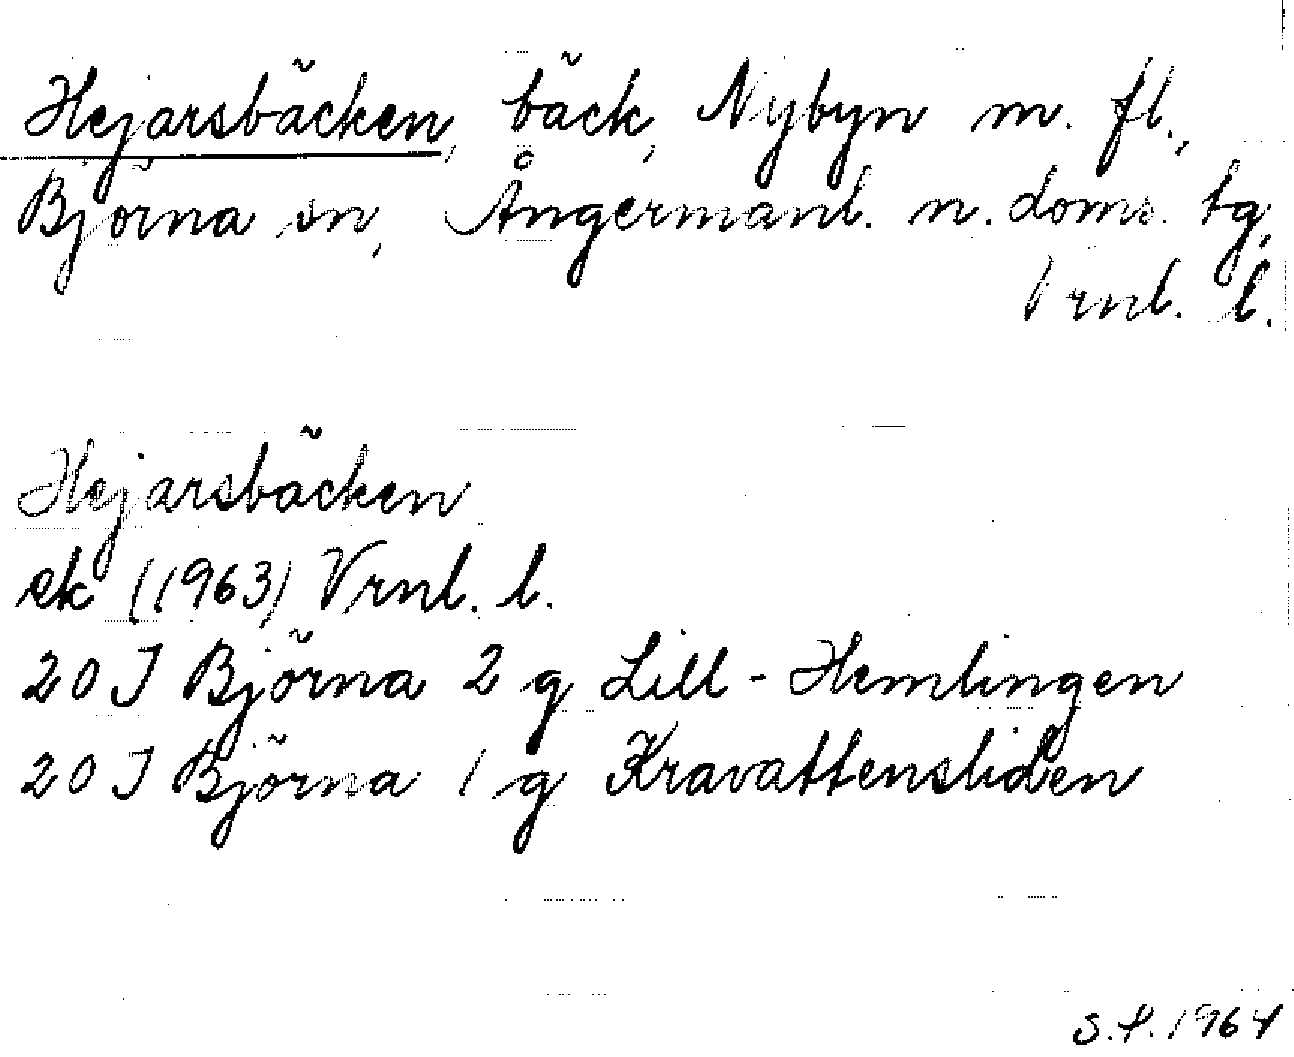 Hejarsbäcken, bäck, Nybyn m. fl.,
Björna sn, Ångermanl. n. doms. tg,
Vrnl. l.
Hejarsbäcken
ek (1963) Vrnl. l.
20 J Björna 2 g Lill-Hemlingen
20 J Björna 1 g Kravattensliden
S.P. 1964